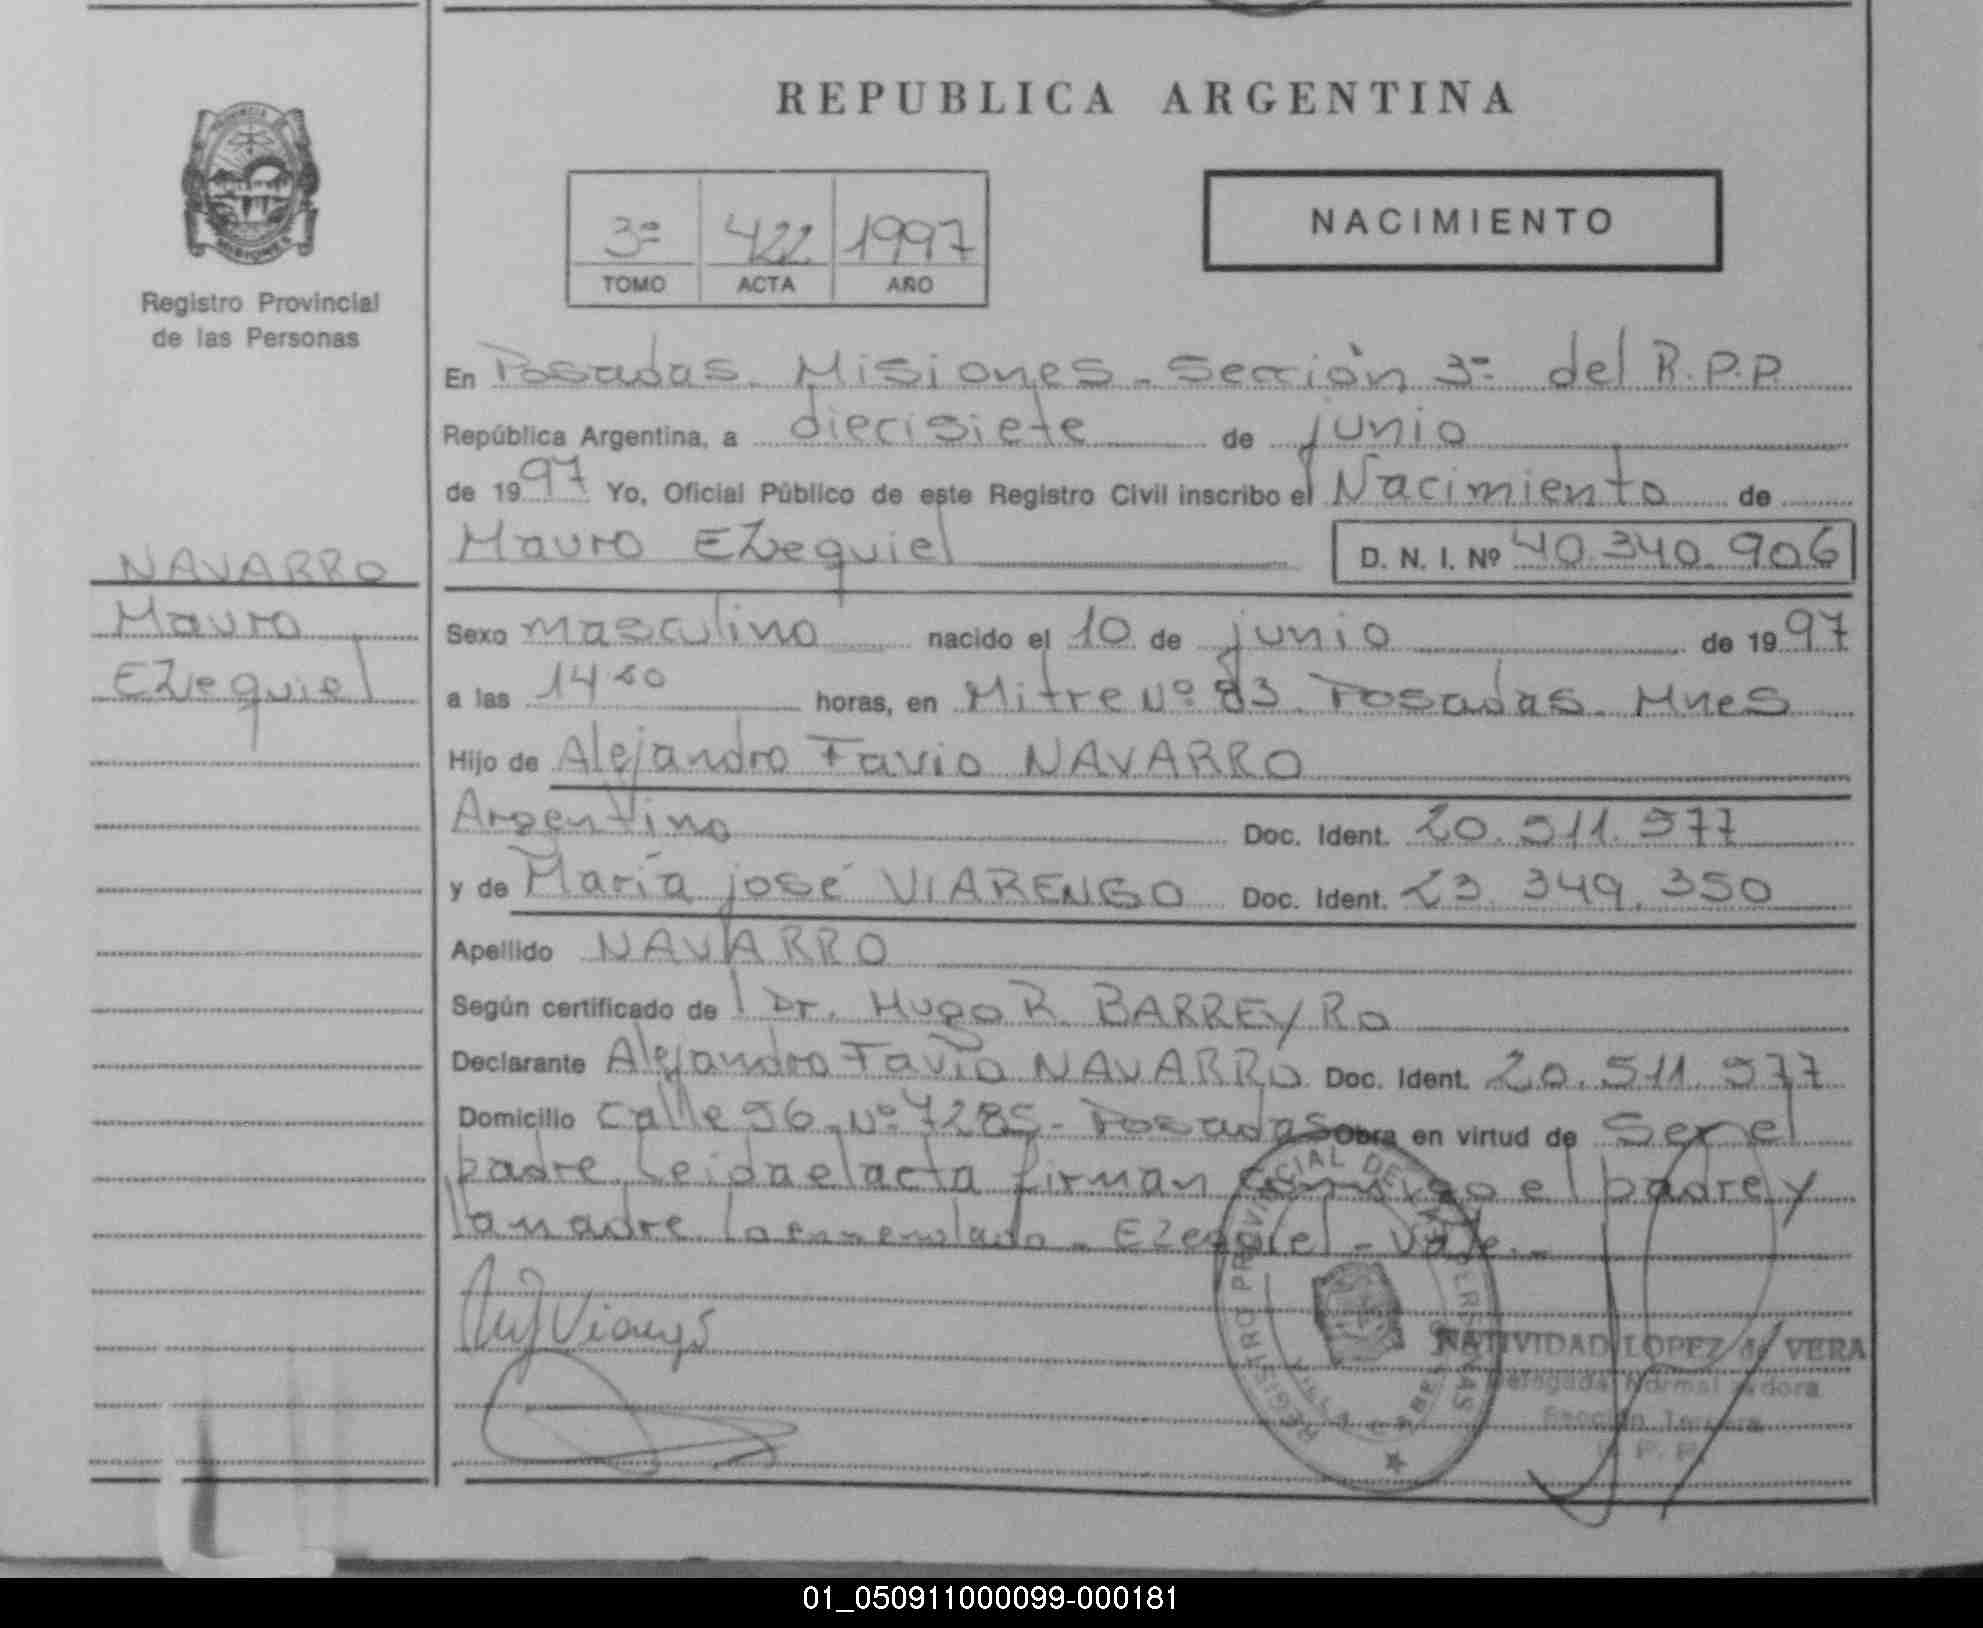 REPUBLICA ARGENTINA
NACIMIENTO
3ª 422 1997
TOMO ACTA AÑO
Registro Provincial
de las Personas
En Posadas. Misiones - Sección 3ª del R.P.P.
República Argentina, a diecisiete de junio
de 1997 Yo, Oficial Público de este Registro Civil inscribo el Nacimiento de
Mauro EZequiel D. N. I. Nº 40.340.906
NAVARRO
Mauro
EZequiel
Sexo masculino nacido el 10 de junio de 1997
a las 14 horas, en Mitre Nº 83. Posadas. Mnes
Hijo de Alejandro Favio NAVARRO
Argentino Doc. Ident. 20.511.577
y de María josé VIARENGO Doc. Ident. 23.349.350
Apellido NAVARRO
Según certificado de Dr. Hugo R. BARREYRO
Declarante Alejandro Favio NAVARRO Doc. Ident. 20.511.577
Domicilio Calle 96 - Nº 7285 - Posadas Obra en virtud de Ser el
padre. Leida el acta firman conmigo el padre y
la madre lo enmendado - EZequiel - Vale. -
REGISTRO PROVINCIAL DE LAS PERSONAS
NATIVIDAD LOPEZ de VERA
Delegada Normalizadora
Sección Tercera
R. P. P.
01_050911000099-000181